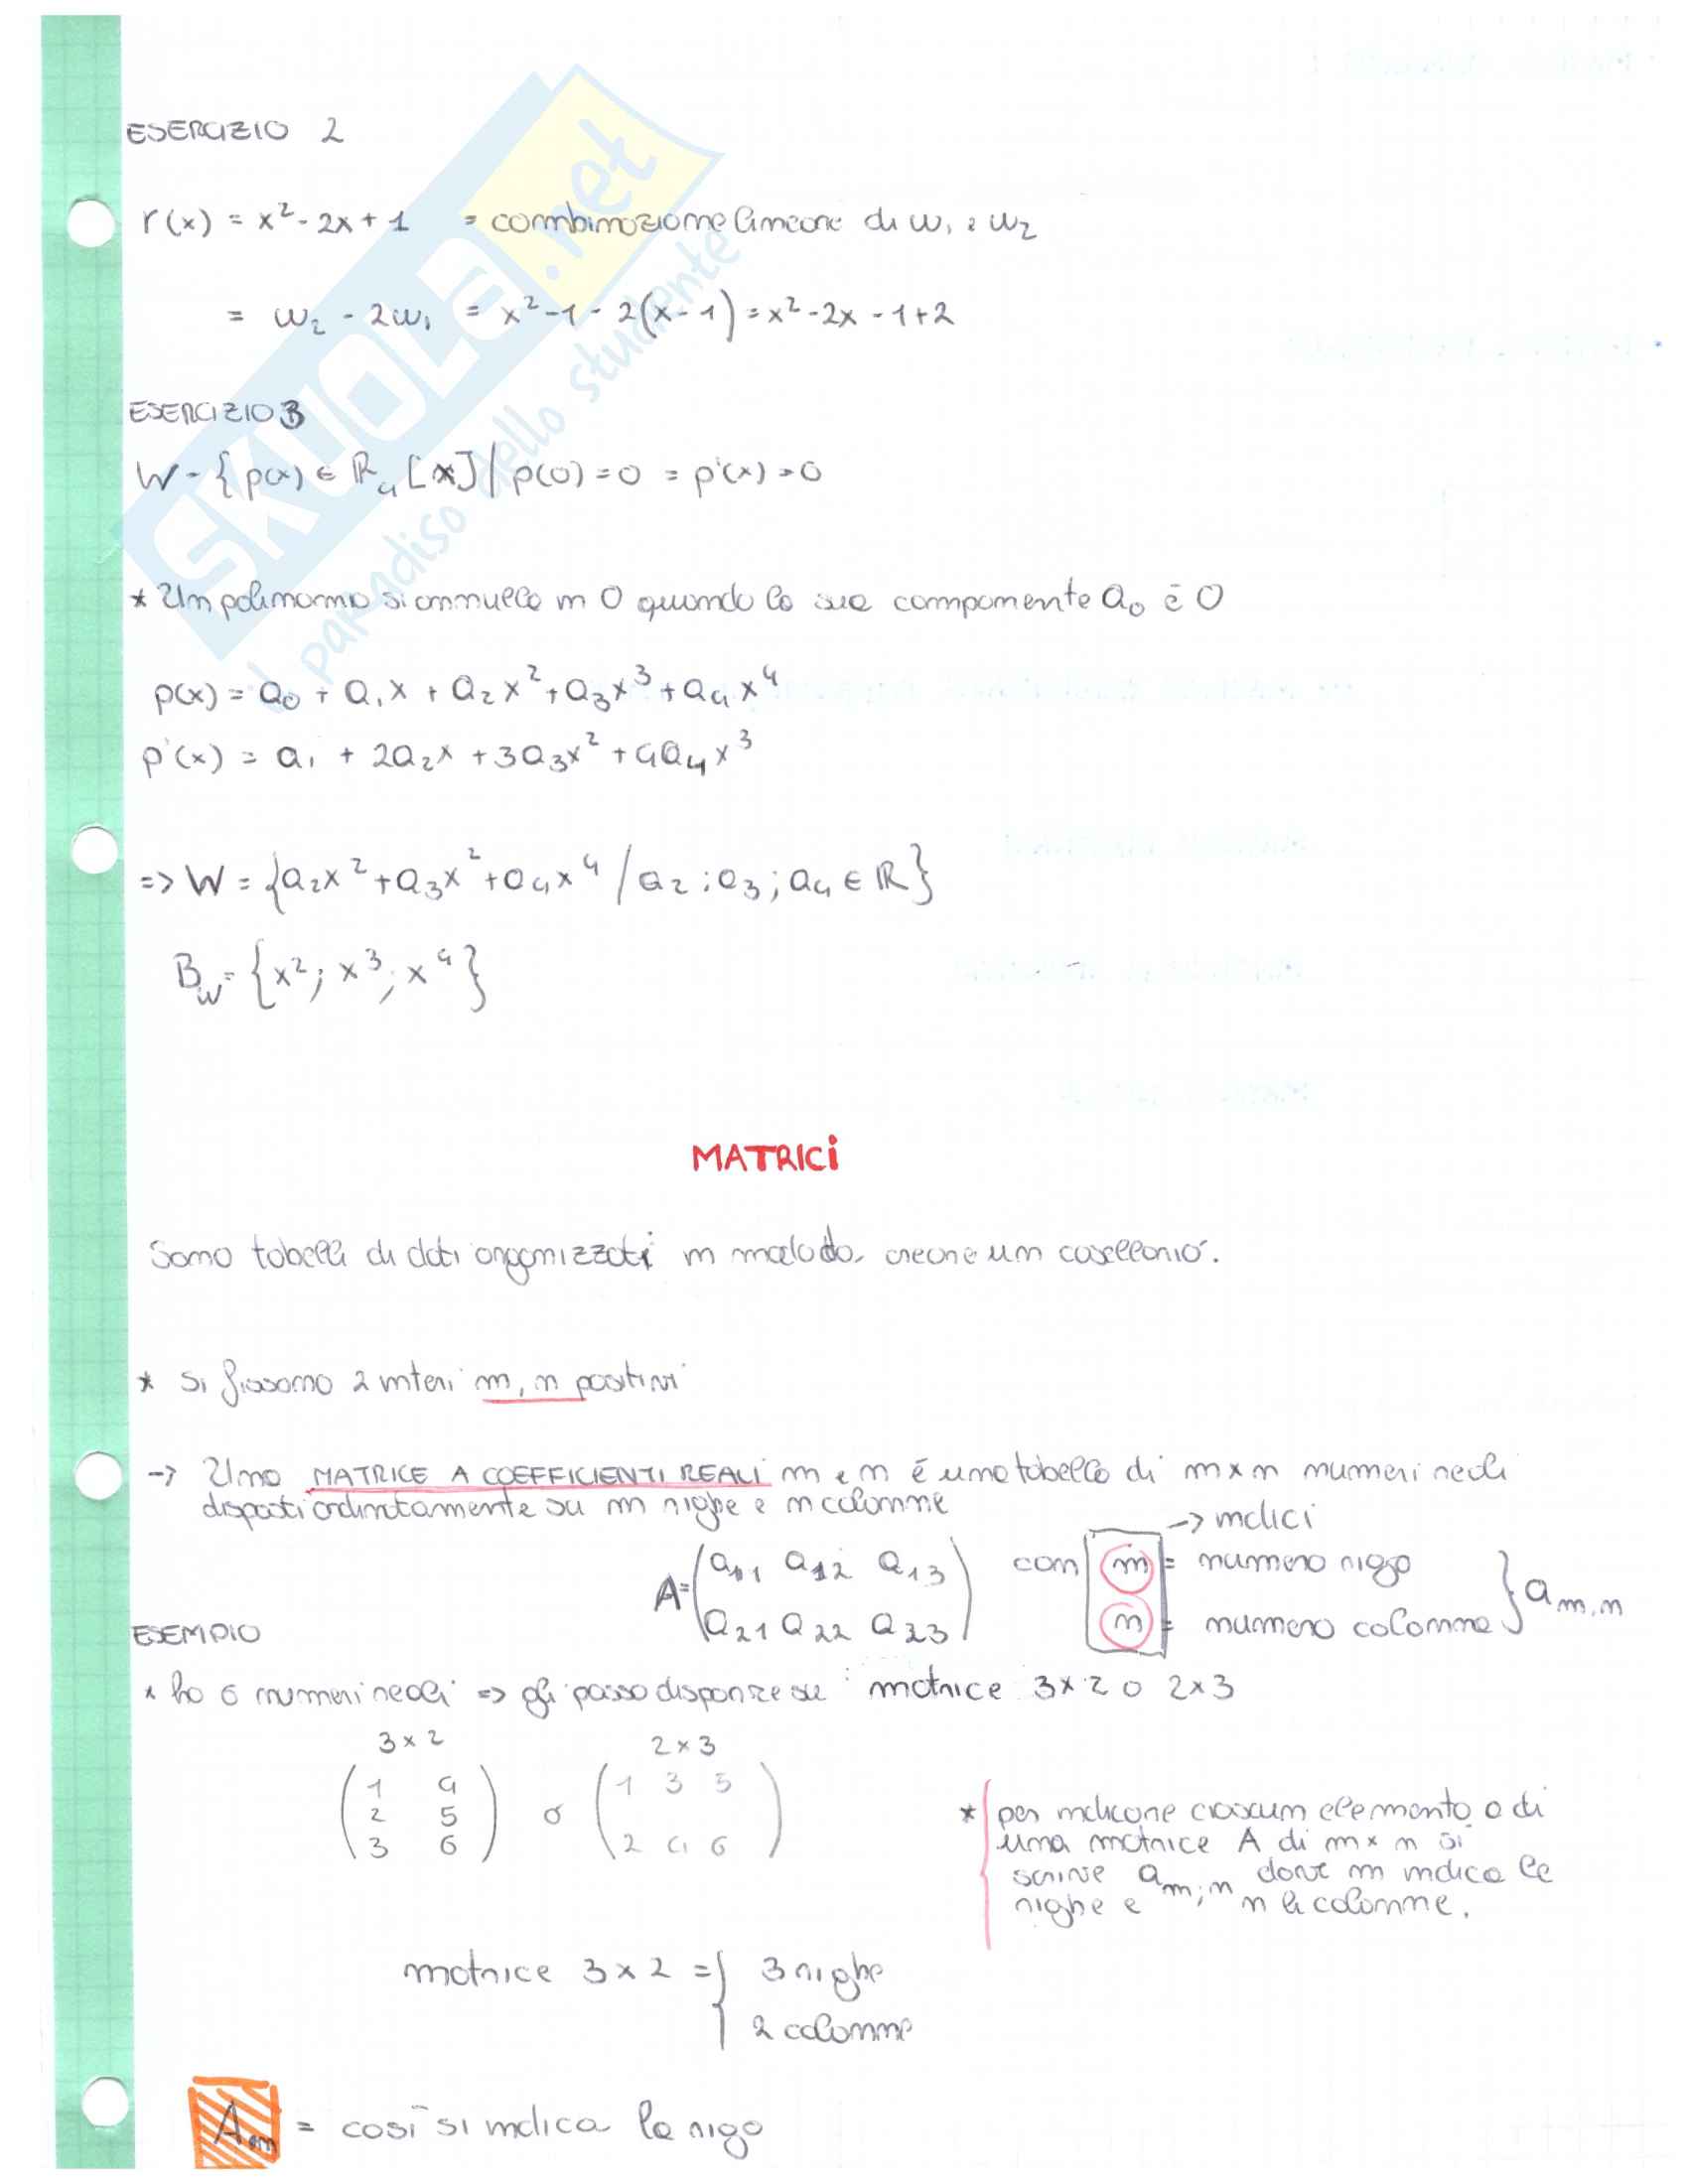 ESERCIZIO 2
r(x) = x² - 2x + 1 = combinazione lineare di w₁ e w₂
= w₂ - 2w₁ = x² - 1 - 2(x - 1) = x² - 2x - 1 + 2
ESERCIZIO 3
W = { p(x) ∈ ℝ₄ [x] / p(0) = 0 = p'(x) = 0
* Un polinomio si annulla in 0 quando la sua componente a₀ è 0
p(x) = a₀ + a₁x + a₂x² + a₃x³ + a₄x⁴
p'(x) = a₁ + 2a₂x + 3a₃x² + 4a₄x³
=> W = {a₂x² + a₃x² + a₄x⁴ / a₂ ; a₃ ; a₄ ∈ ℝ}
B_W = {x² ; x³ ; x⁴}
MATRICI
Sono tabelle di dati organizzati in modo da creare un casellario.
* Si fissano 2 interi m, n positivi
-> Una MATRICE A COEFFICIENTI REALI m e n é una tabella di m x n numeri reali
disposti ordinatamente su m righe e n colonne
-> indici
A = (a₁₁ a₁₂ a₁₃ con m = numero riga
a₂₁ a₂₂ a₂₃) n = numero colonna } a m,n
ESEMPIO
* ho 6 numeri reali => gli posso disporre su matrice 3 x 2 o 2 x 3
3 x 2 2 x 3
(1 4 (1 3 5
2 5 o
3 6) 2 4 6)
* per indicare ciascun elemento a di
una matrice A di m x n si
scrive a m;n dove m indica le
righe e n le colonne.
matrice 3 x 2 = } 3 righe
2 colonne
A m = così si indica la riga
SKUOLA.net
il paradiso dello studente